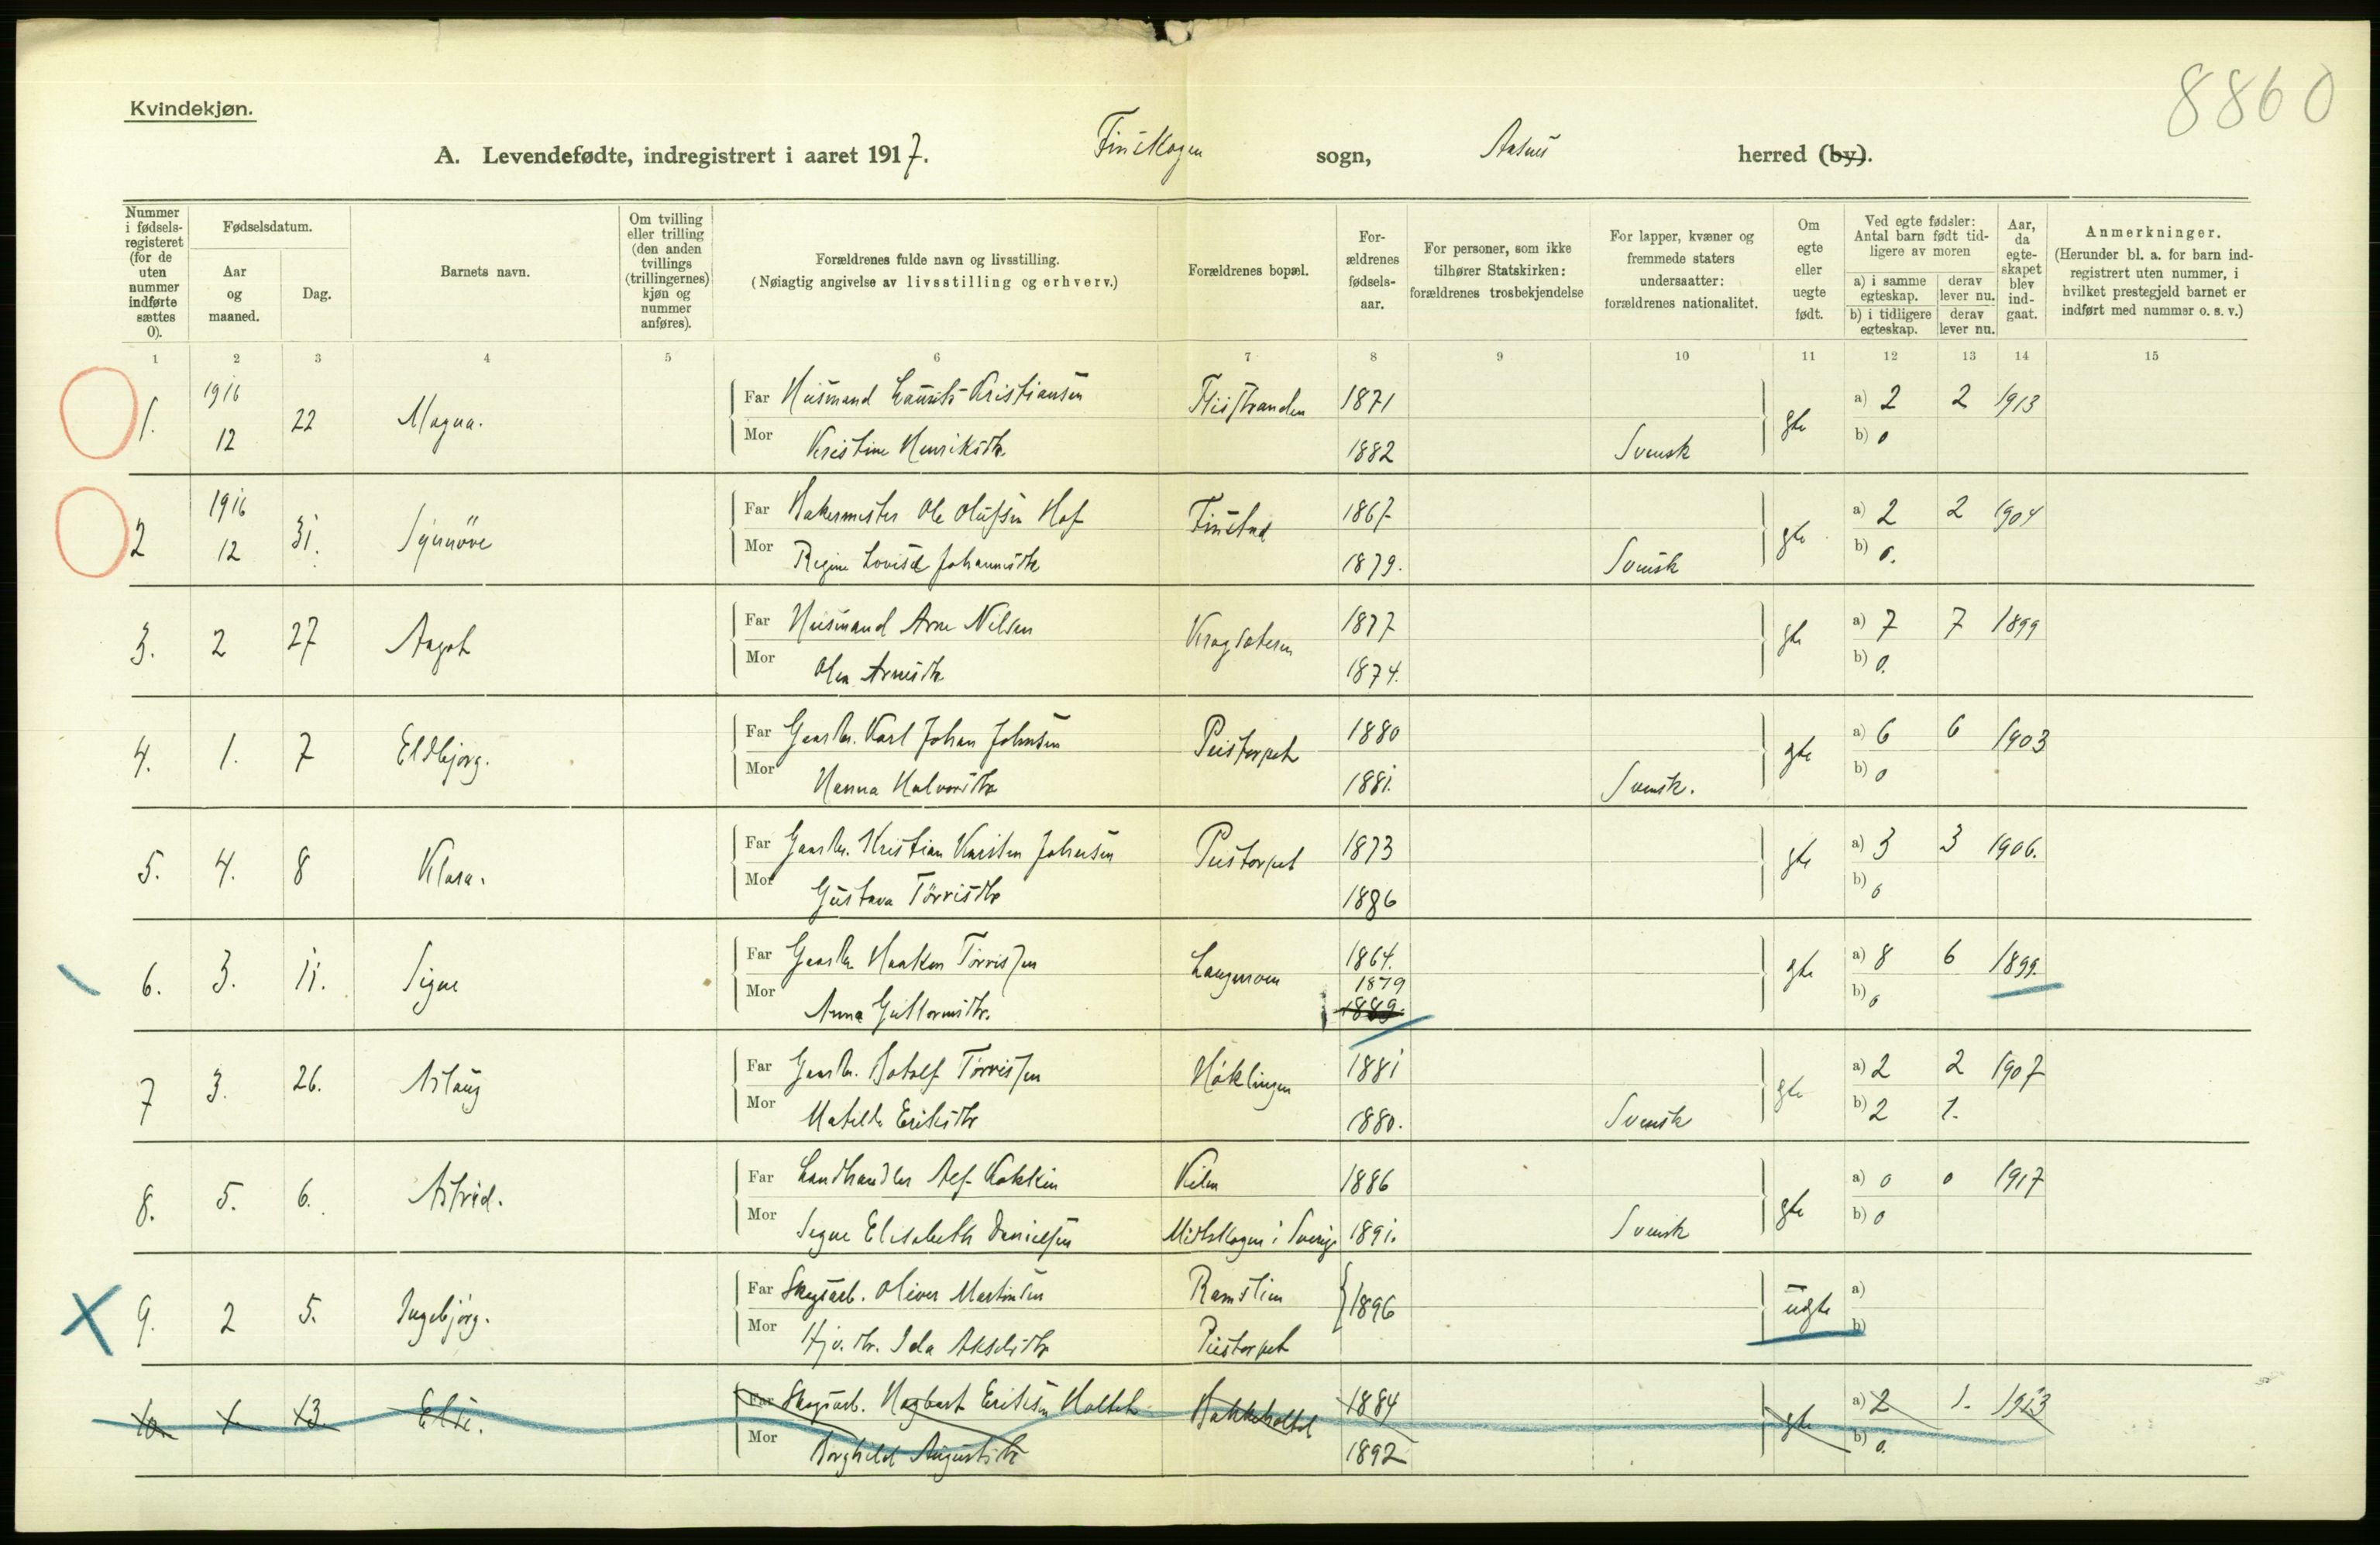 8860
Kvindekjøn.
A. Levendefødte, indregistrert i aaret 1917. Finskogen sogn, Aasnes herred (by).
Nummer i fødsels-registeret (for de uten nummer indførte sættes 0).
Fødselsdatum.
Aar og maaned.
Dag.
Barnets navn.
Om tvilling eller trilling (den anden tvillings (trillingernes) kjøn og nummer anføres).
Forældrenes fulde navn og livsstilling.
(Nøiagtig angivelse av livsstilling og erhverv.)
Forældrenes bopæl.
For-ældrenes fødsels-aar.
For personer, som ikke tilhører Statskirken: forældrenes trosbekjendelse
For lapper, kvæner og fremmede staters undersaatter: forældrenes nationalitet.
Om egte eller uegte født.
Ved egte fødsler: Antal barn født tid-ligere av moren
a) i samme egteskap. derav lever nu.
b) i tidligere egteskap. derav lever nu.
Aar, da egte-skapet blev ind-gaat.
Anmerkninger.
(Herunder bl. a. for barn ind-registrert uten nummer, i hvilket prestegjeld barnet er indført med nummer o. s. v.)
1 2 3 4 5 6 7 8 9 10 11 12 13 14 15
1. 1916 12 22 Magna. Far Husmand Laurits Kristiansen 1871 gte a) 2 2 1913
Mor Kristine Henriksdtr. 1882 Svensk b) 0
2 1916 12 31. Synnöve Far Bakermester Ole Olufsen Hof Finstad 1867 gte a) 2 2 1904
Mor Regine Lovise Johannesdtr 1879. Svensk b) 0.
3. 2 27 Aagot Far Husmand Arne Nilsen Kragsæteren 1877 gte a) 7 7 1899
Mor Olea Arnesdtr 1874. b) 0.
4. 1. 7 Eldbjörg. Far Gaardbr. Karl Johan Johnsen Peistorpet 1880 gte a) 6 6 1903
Mor Hanna Halvorsdtr 1881. Svensk. b) 0
5. 4. 8 Klara. Far Gaardbr. Kristian Karsten Johnsen Peistorpet 1873 gte a) 3 3 1906.
Mor Gustava Törrisdtr 1886 b) 0
6. 3. 11. Signe Far Gaardbr Haaken Törrissen 1864. gte a) 8 6 1899.
Mor Anna Guttormsdtr. 1879 1889. b) 0
7 3. 26. Aslaug Far Gaardbr. Botolf Törrissen Höklingen 1881 gte a) 2 2 1907
Mor Matilde Eriksdtr 1880. Svensk b) 2 1.
8. 5. 6. Astrid. Far Landhandler Alf Kokkin Kilen 1886 gte a) 0 0 1917
Mor Signe Elisabeth Danielsen Midtskogen i Sverige 1891. Svensk b) 0
9. 2 5. Ingebjörg. Far Skogsarb. Oliver Martinsen Ramslien 1896 uegte a)
Mor Hjv. dtr. Ida Akselsdtr Peistorpet b)
10 1. 13. Else. Far Skogsarb. Hagbart Eriksen Holtet Bakkeholtet 1884 gte a) 2 1. 1913
Mor Borghild Augustsdtr 1892 b) 0.